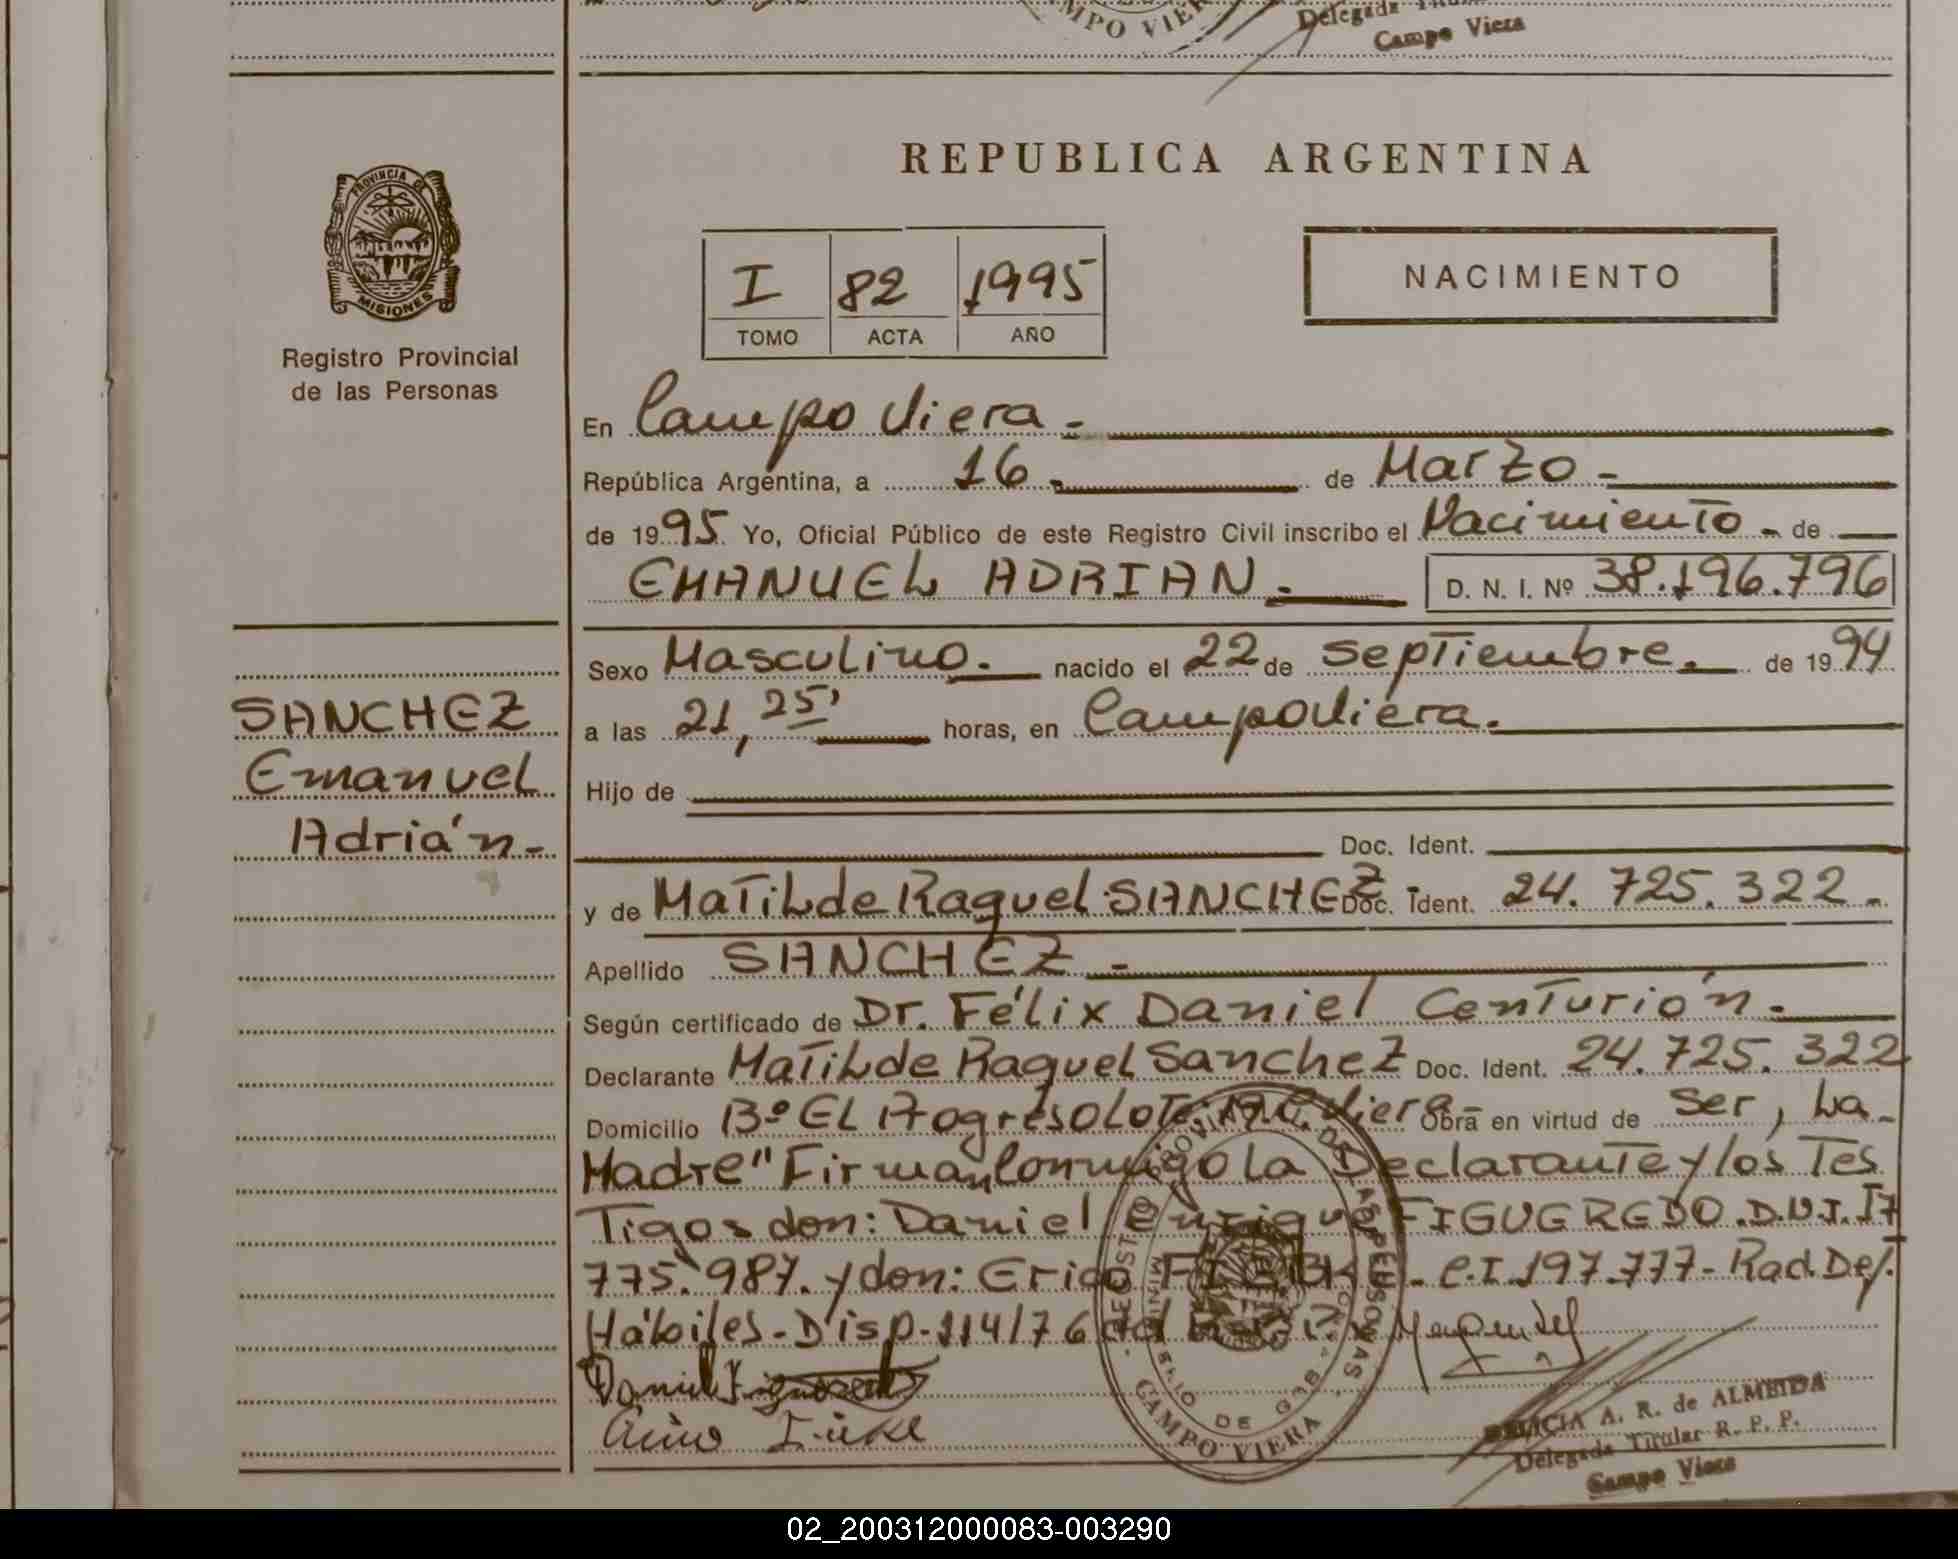 MPO VIER
Delegada Titu
Campo Viera
PROVINCIA DE
MISIONES
Registro Provincial
de las Personas
REPUBLICA ARGENTINA
I 82 1995
TOMO ACTA AÑO
NACIMIENTO
En Campo Viera -
República Argentina, a 16 - de Marzo -
de 1995 Yo, Oficial Público de este Registro Civil inscribo el Nacimiento - de
EMANUEL ADRIAN - D. N. I. Nº 38.196.796
Sexo Masculino. nacido el 22 de Septiembre. de 1994
a las 21, 25' horas, en Campo Viera.
Hijo de
Doc. Ident.
y de Matilde Raquel SANCHEZ - Doc. Ident. 24. 725. 322 -
Apellido SANCHEZ -
Según certificado de Dr. Félix Daniel Centurión -
Declarante Matilde Raquel Sanchez Doc. Ident. 24.725. 322
Domicilio Bº EL Progreso Lote Viera - Obra en virtud de Ser, La
Madre" Firman Conmigo La Declarante y los Tes
Tigos don: Daniel Enrique FIGUEREDO. D.N.I. 17
775. 987. y don: Erico - C.I. 197.777 - Rad. De/.
Hábiles - Disp. 114/76 del
SANCHEZ
Emanuel
Adrián -
REGISTRO PROVINCIAL DE LAS PERSONAS
MINISTERIO DE GOB
CAMPO VIERA
FELICIA A. R. de ALMEIDA
Delegada Titular R. P. P.
Campo Viera
02_200312000083-003290